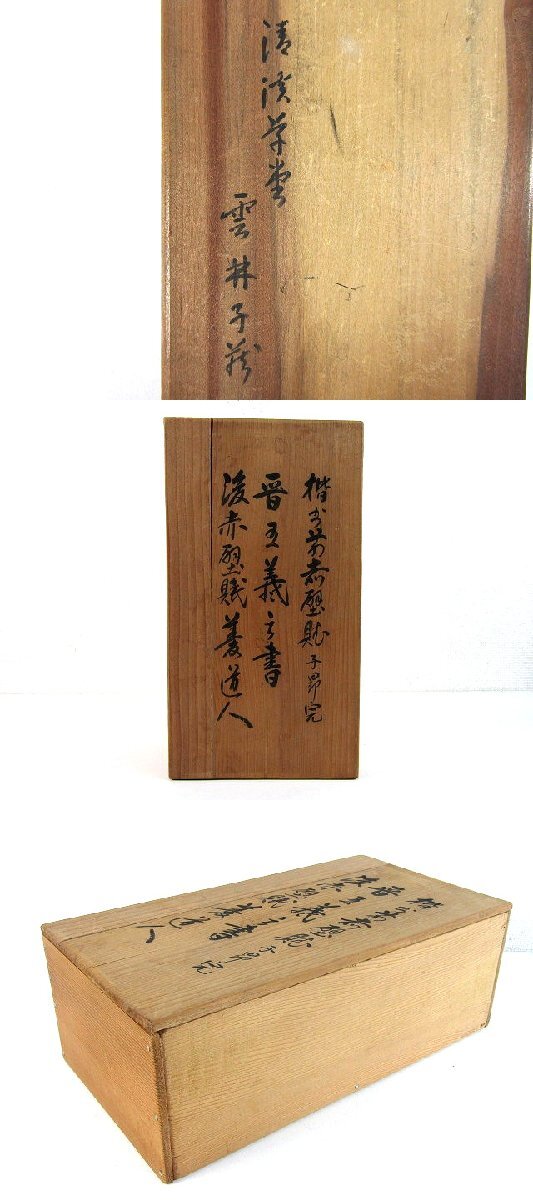 清渓草堂
雲林子蔵
楷書前赤壁賦子昴完
晋王羲之書
後赤壁賦養道人
楷書前赤壁賦子昴完
晋王羲之書
後赤壁賦養道人